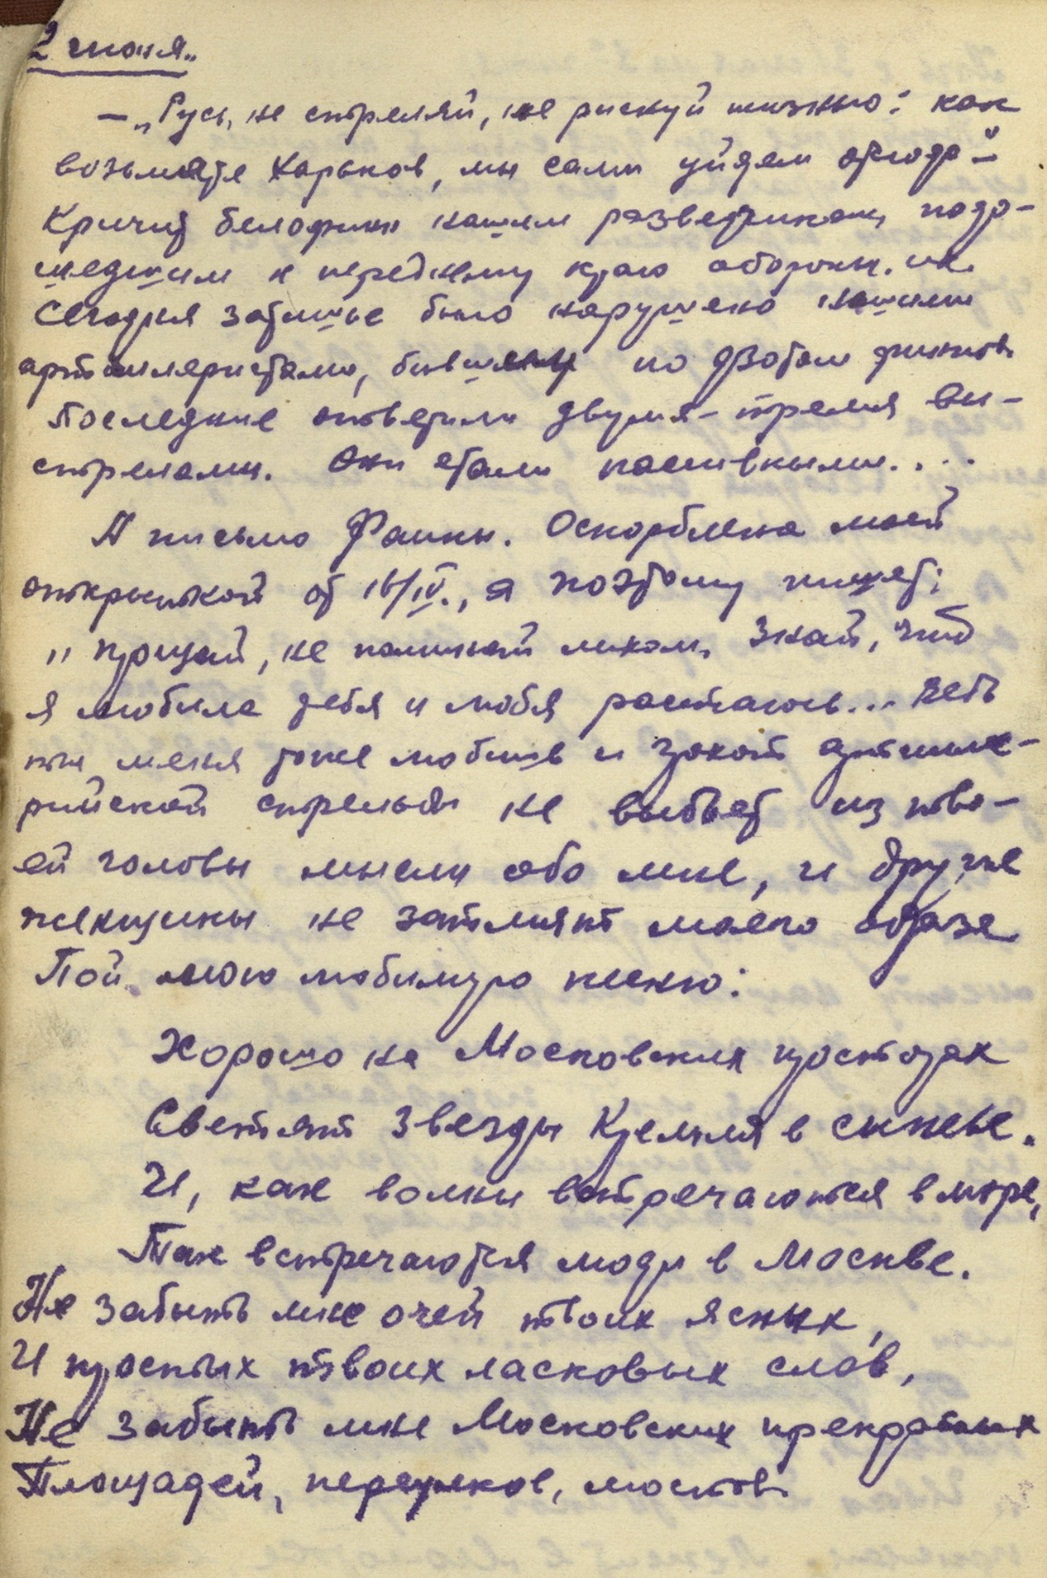 2 июня.
— „Русь, не стреляй, не рискуй жизнью: как
возьмете Харьков, мы сами уйдем отсюда" —
Кричат белофины нашим разведчикам, подо-
шедшим к переднему краю обороны их.
Сегодня затишье было нарушено нашими
артиллеристами, бившими по дзотам финнов.
Последние ответили двумя-тремя вы-
стрелами. Они стали пассивными....
А письмо Фаины. Оскорблена моей
открыткой от 16/IV., а поэтому пишет:
„Прощай, не поминай лихом. Знай, что
я любила тебя и любя расстаюсь...
ты меня тоже любишь и грохот артилле-
рийской стрельбы не выбьет из тво-
ей головы мысли обо мне, и другие
женщины не затмят моего образа
Пой мою любимую песню:
Хорошо на Московских просторах
Светят звезды Кремля в синеве.
И, как волны встречаются в море,
Так встречаются люди в Москве.
Не забыть мне очей твоих ясных,
И простых твоих ласковых слов,
Не забыть мне Московских прекрасных
Площадей, переулков, мостов.